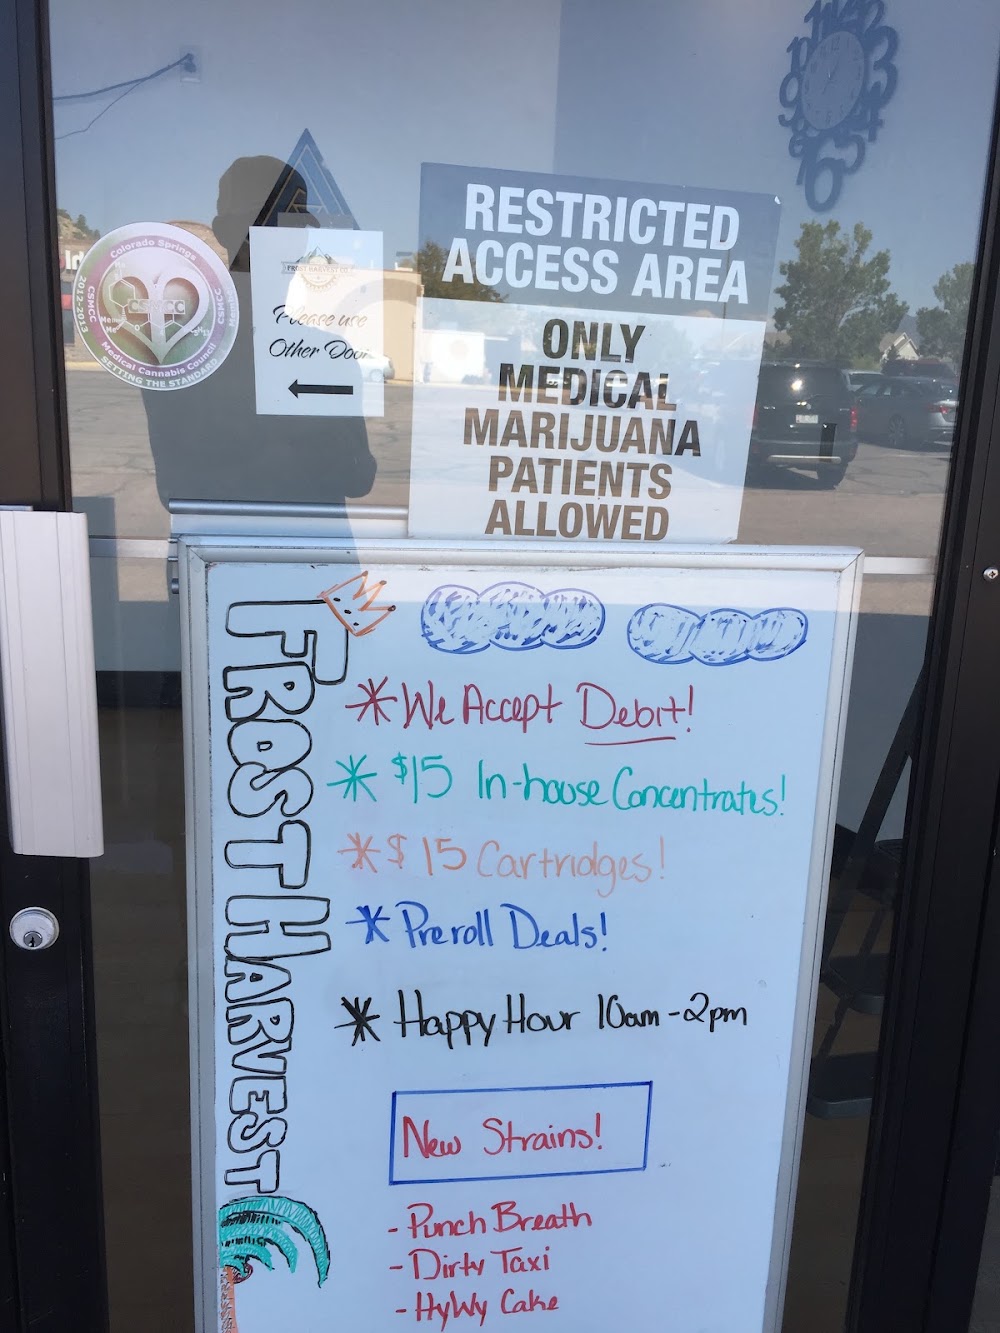 Colorado Springs
CSMCC
2012-2013
CSMCC
CSMCC
Member
Medical Cannabis Council
SETTING THE STANDARD
FROST HARVEST CO.
Please use
Other Door
RESTRICTED
ACCESS AREA
ONLY
MEDICAL
MARIJUANA
PATIENTS
ALLOWED
FROST HARVEST
*We Accept Debit!
*$15 In-house Concentrates!
*$15 Cartridges!
*Preroll Deals!
*Happy Hour 10am-2pm
New Strains!
-Punch Breath
-Dirty Taxi
-HyWy Cake